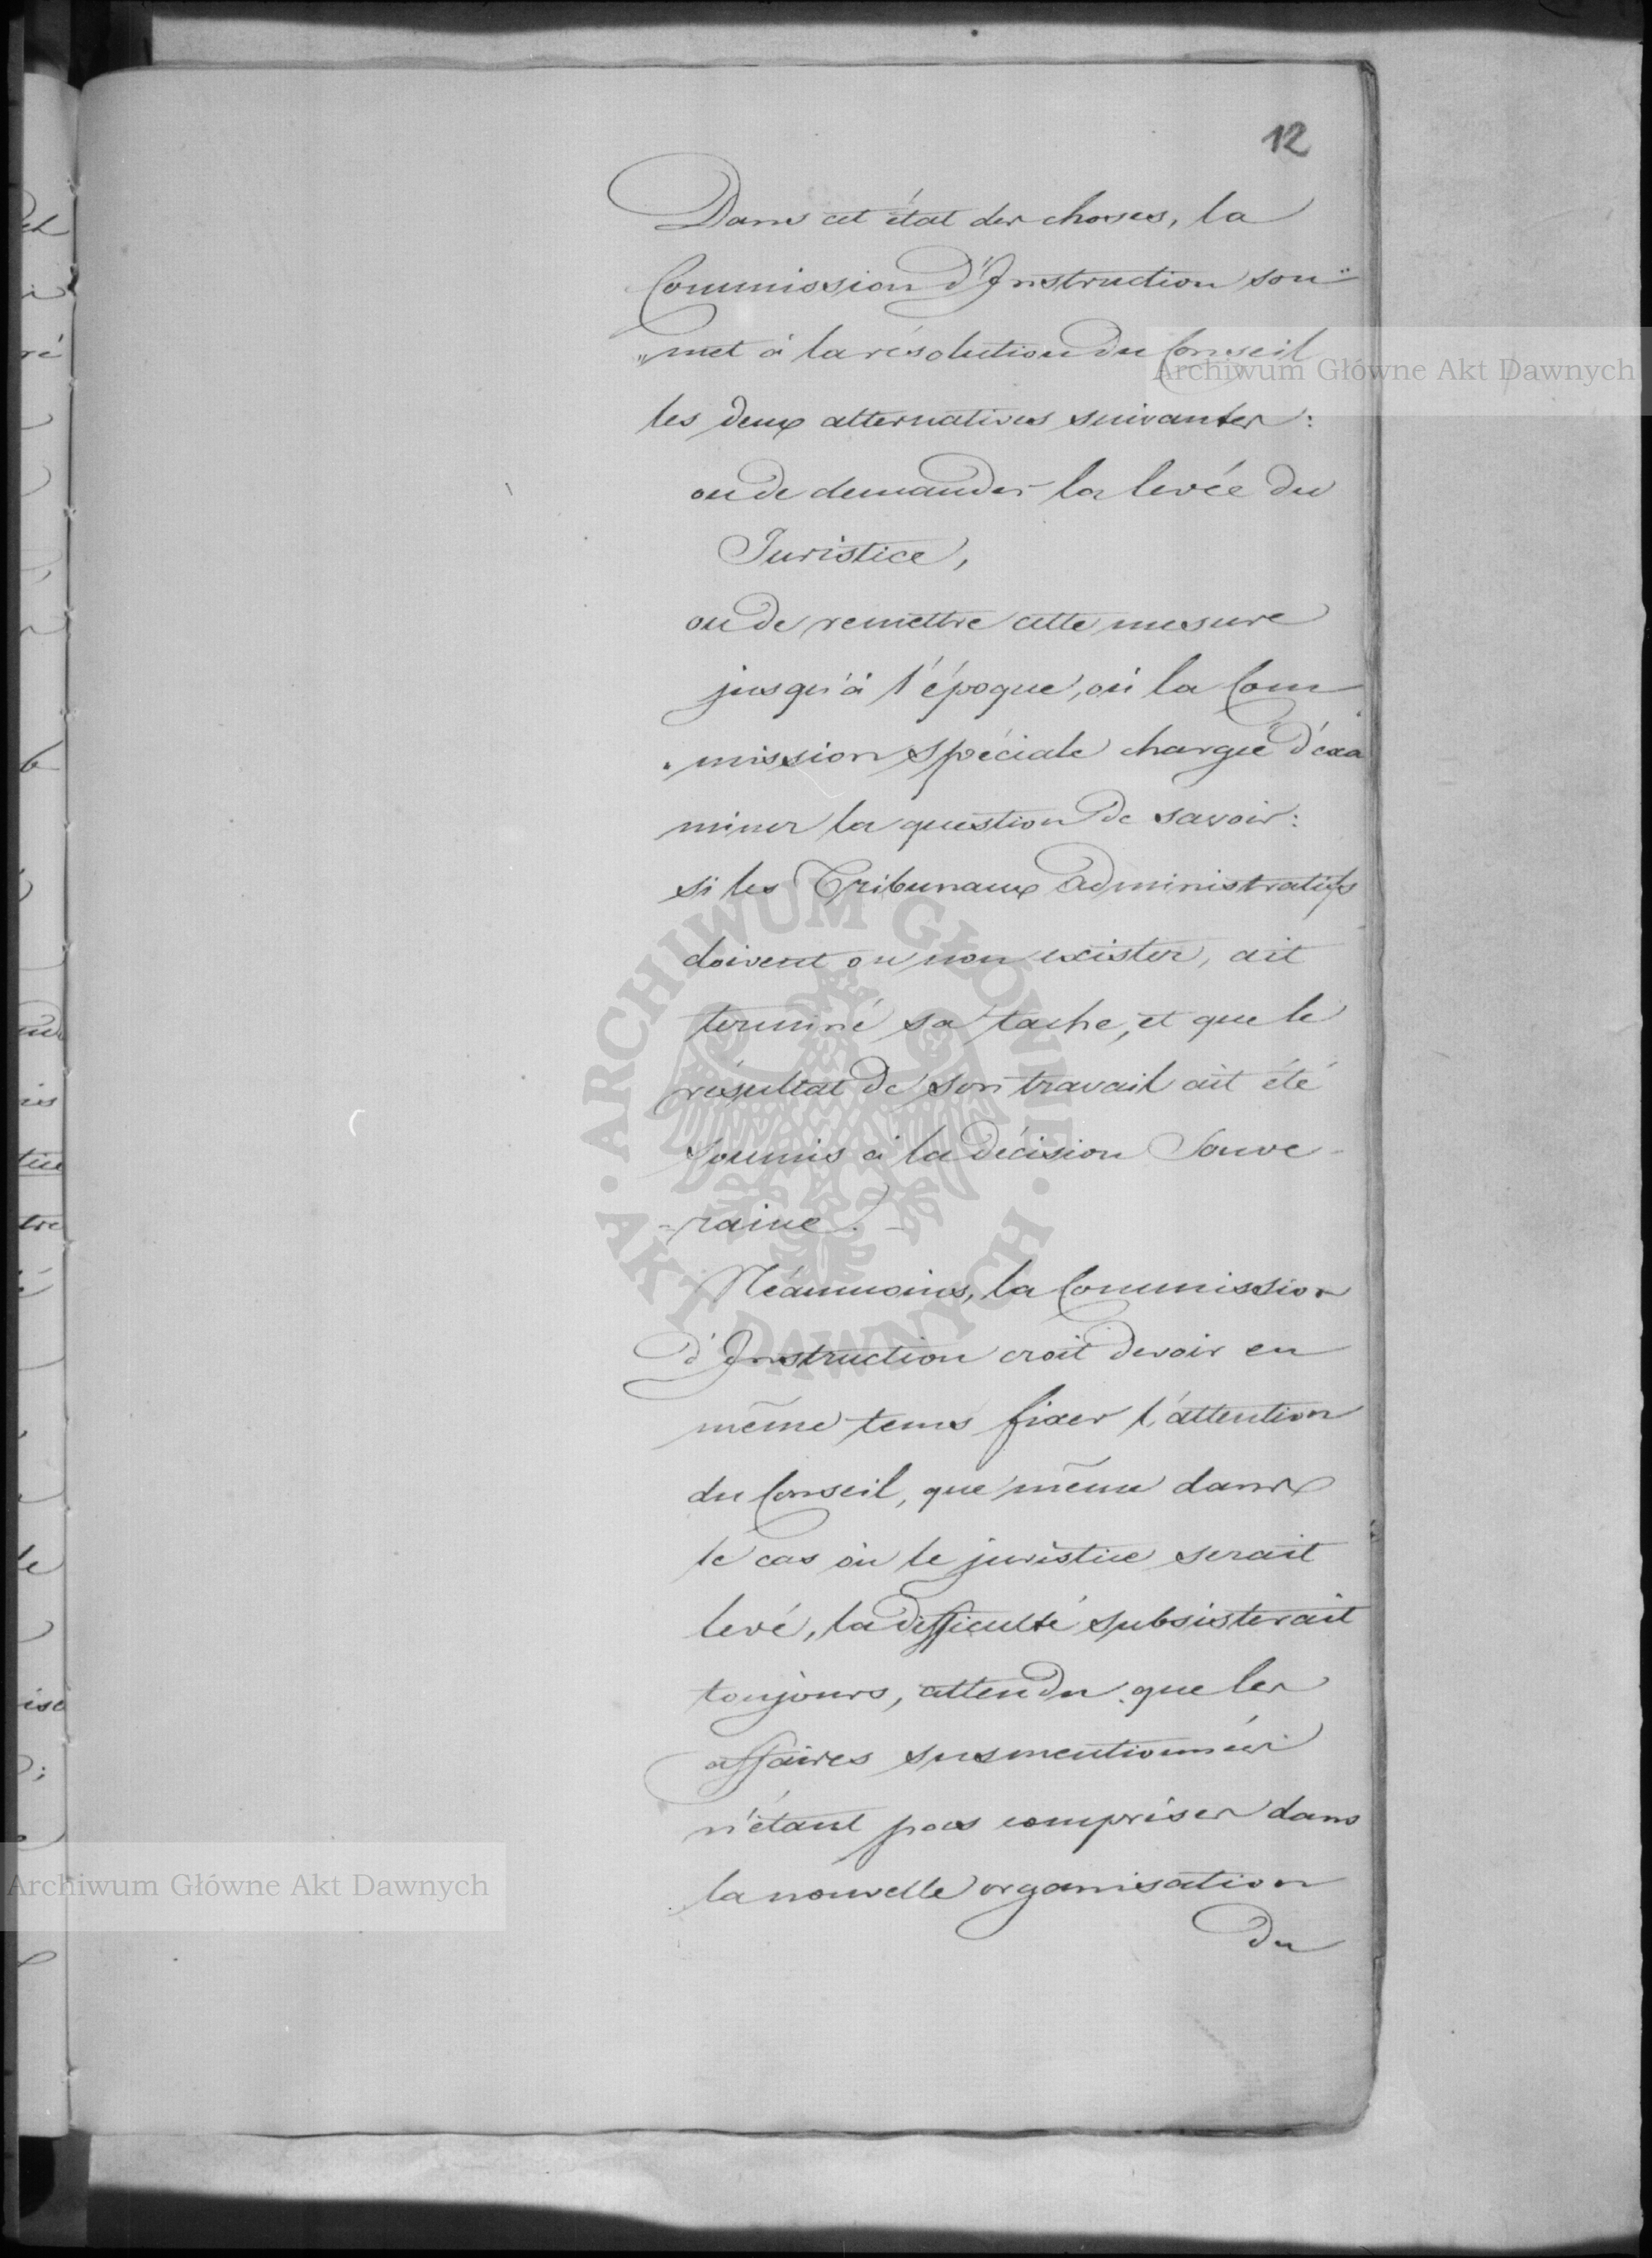 12
Dans cet état des choses, la
Commission d'Instruction sou"
"met à la résolution du Conseil
les deux alternatives suivantes:
ou de demander la levée du
Juristice,
ou de remettre cette mesure
jusqu'à l'époque, où la Com
"mission spéciale chargée d'exa
miner la question de savoir:
si les Tribunaux administratifs
doivent ou non exister, ait
terminé sa tache, et que le
résultat de son travail ait été
soumis à la décision Souve-
-raine.-
Néanmoins, la Commission
d'Instruction croit devoir en
même tems fixer l'attention
du Conseil, que même dans
le cas où le juristice serait
levé, la difficulté subsisterait
toujours, attendu que les
affaires susmentionnées
n'étant pas comprises dans
la nouvelle organisation
du
Archiwum Główne Akt Dawnych
ARCHIWUM GŁÓWNE AKT DAWNYCH
Archiwum Główne Akt Dawnych